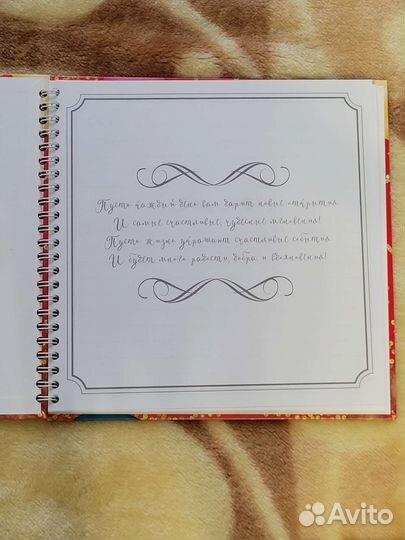 Пусть каждый день вам дарит новые открытия
И самые счастливые, чудесные мгновения!
Пусть жизнь украшают счастливые события
И будет много радости, добра и везения!
Avito